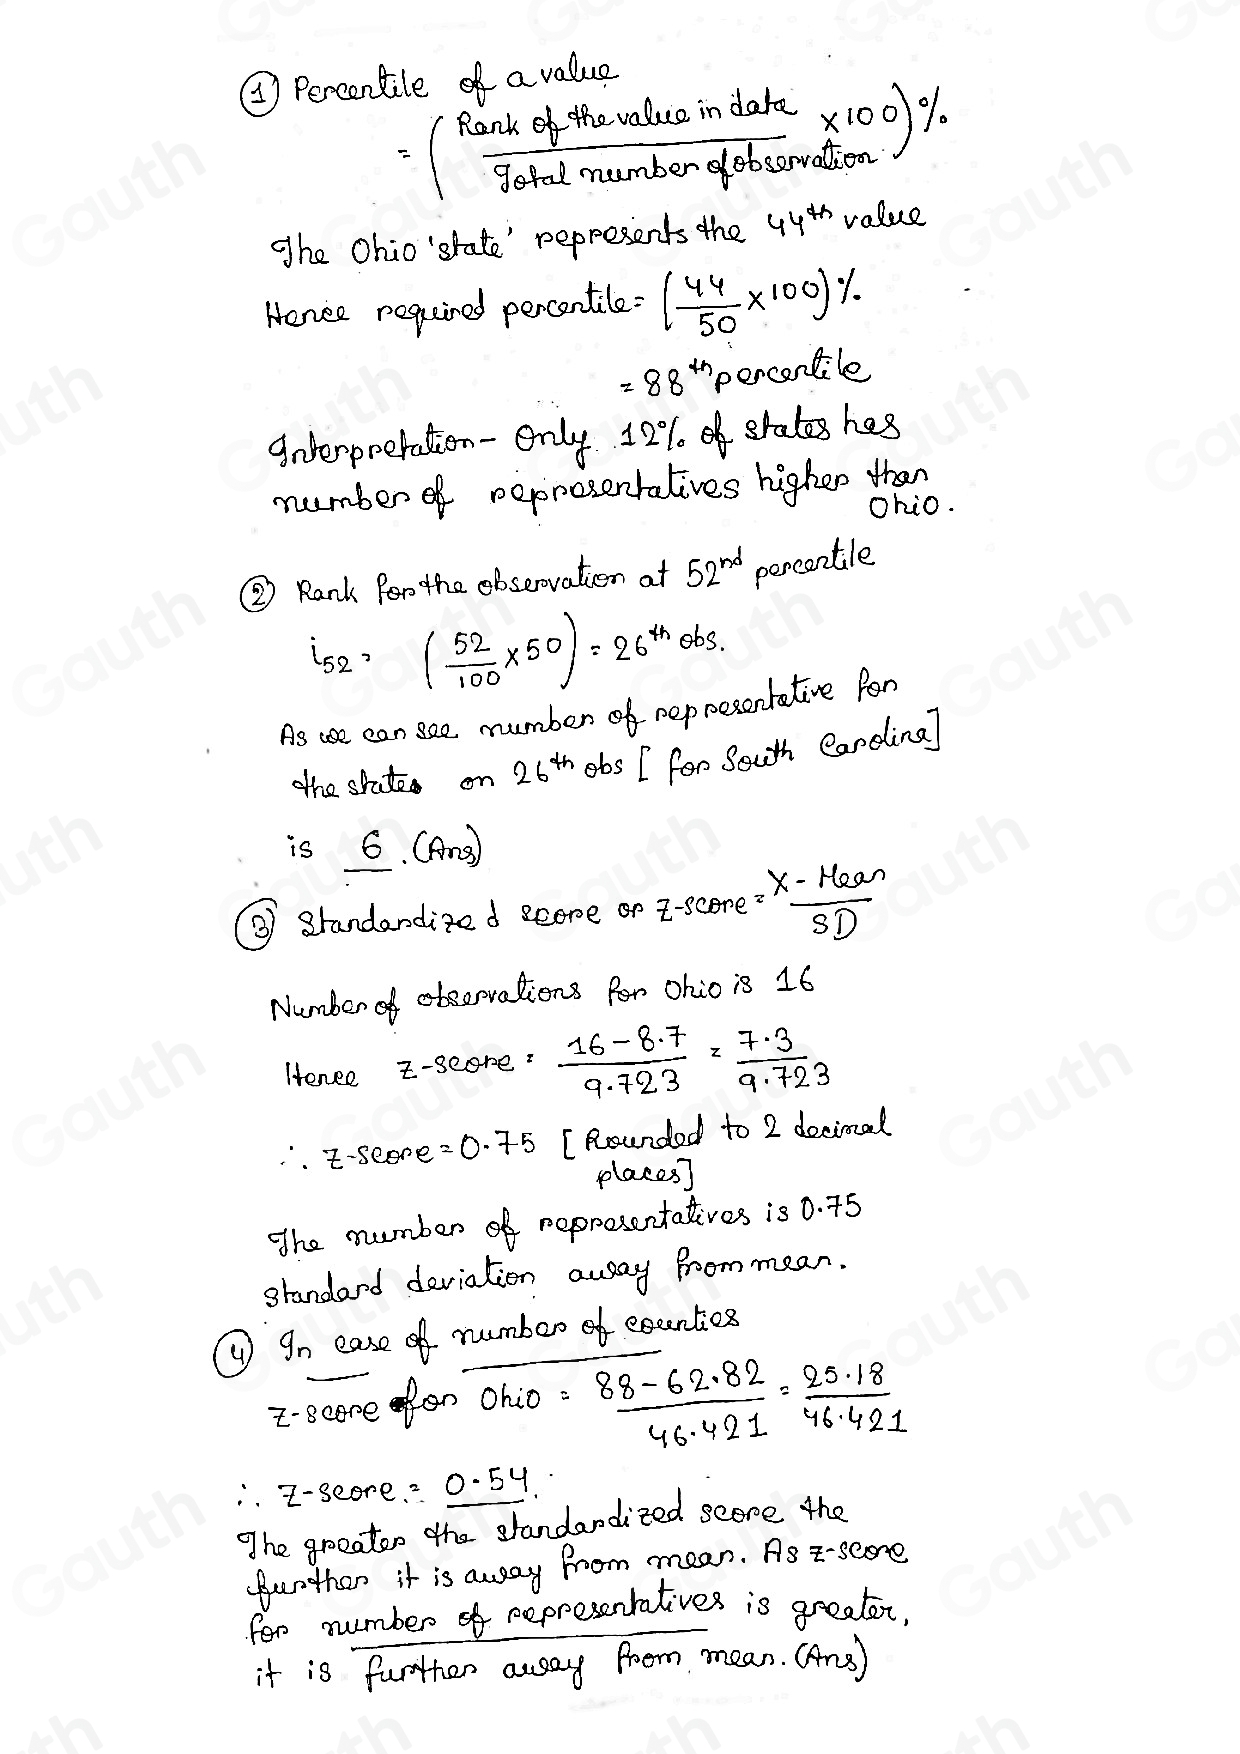 ① Percentile of a value
= (Rank of the value in data / Total number of observation × 100)%
The Ohio 'state' represents the 44th value
Hence required percentile = (44/50 × 100)%
= 88th percentile
Interpretation - Only 12% of states has
number of representatives higher than
Ohio.
② Rank for the observation at 52nd percentile
i52 = (52/100 × 50) = 26th obs.
As we can see number of representative for
the states on 26th obs [for South Carolina]
is 6. (Ans)
③ Standardized score or z-score = X - Mean / SD
Number of observations for Ohio is 16
Hence z-score = 16 - 8.7 / 9.723 = 7.3 / 9.723
∴ z-score = 0.75 [Rounded to 2 decimal
places]
The number of representatives is 0.75
standard deviation away from mean.
④ In case of number of counties
z-score for Ohio = 88 - 62.82 / 46.421 = 25.18 / 46.421
∴ z-score = 0.54.
The greater the standardized score the
further it is away from mean. As z-score
for number of representatives is greater,
it is further away from mean. (Ans)